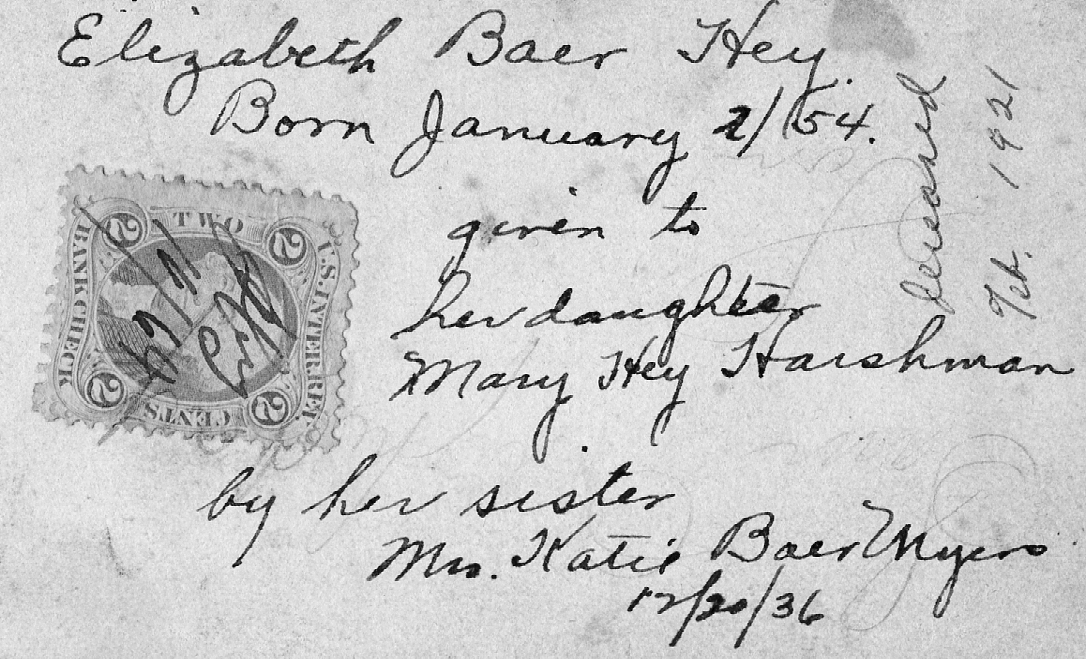 Elizabeth Baer Hey.
Born January 2/54.
given to
her daughter
Mary Hey Harshman
by her sister
Mrs. Katie Baer Myers
12/20/36
deceased
Feb. 1921
TWO
2 2
BANK CHECK
U.S. INTER. REV.
2 2
CENTS